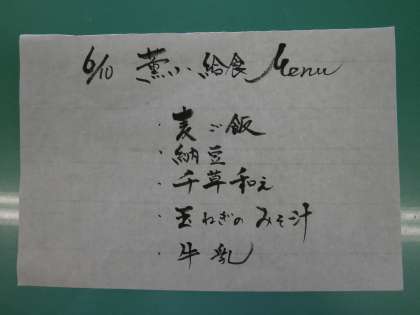 6/10 薫小 給食 Menu
・麦ご飯
・納豆
・千草和え
・玉ねぎのみそ汁
・牛乳